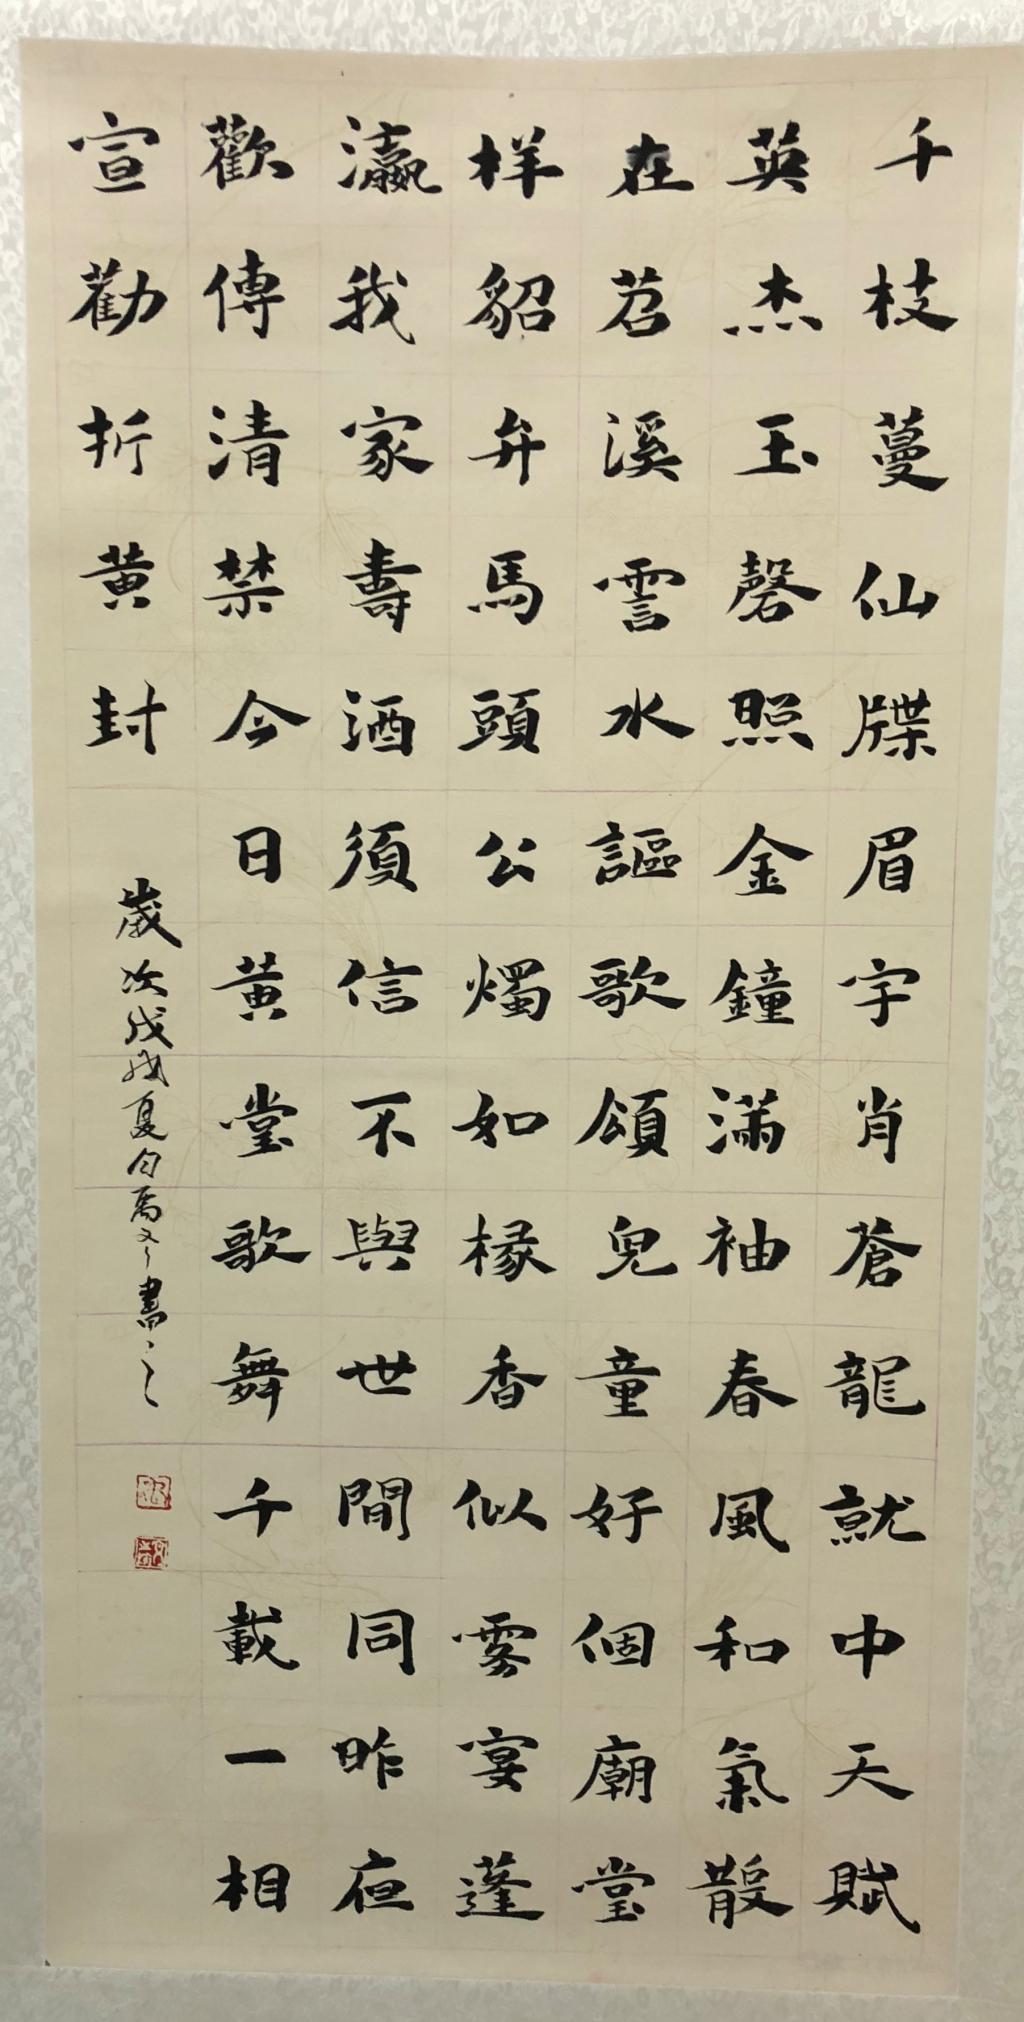 千枝蔓仙牒眉宇肖蒼龍就中天賦
英杰玉磬照金鐘滿袖春風和氣散
在苕溪雲水謳歌頌兒童好個廟堂
樣貂弁馬頭公燭如椽香似雾宴蓬
瀛我家壽酒須信不與世間同昨夜
歡傳清禁今日黄堂歌舞千載一相
宣勸折黄封
歲次戊戌夏月 書之